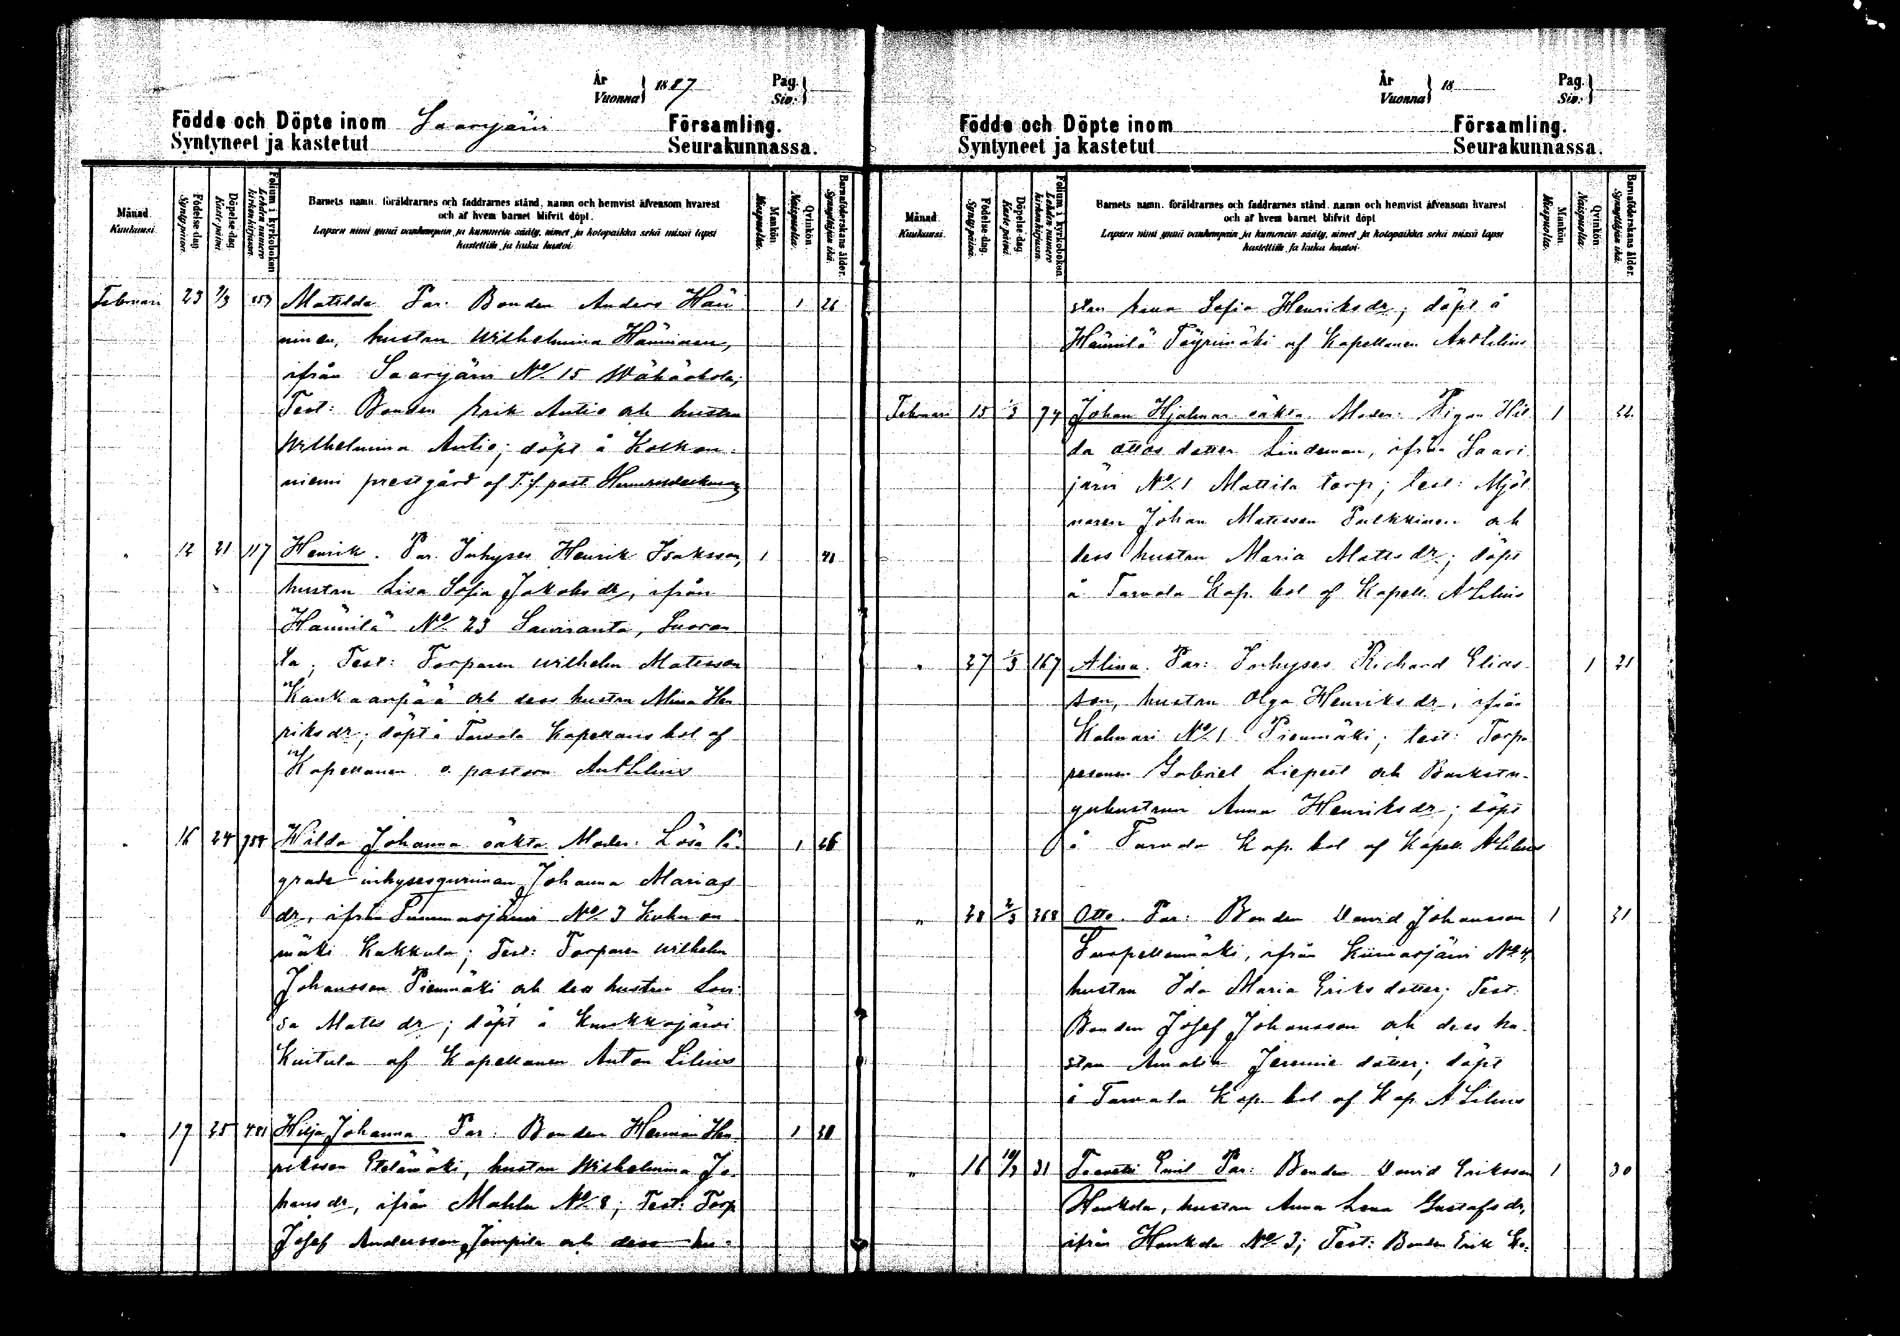 År
Vuonna } 1887
Pag.
Siv. }
Födde och Döpte inom Saarijärvi Församling.
Syntyneet ja kastetut Seurakunnassa.
Månad.
Kuukausi.
Födelse-dag.
Syntypäivä.
Döpelse-dag.
Kastepäivä.
Folium i kyrkoboken
Lehden numero kirkonkirjassa.
Barnets namn, föräldrarnes och faddrarnes stånd, namn och hemvist äfvensom hvarest
och af hvem barnet blifvit döpt.
Lapsen nimi ynnä vanhempain ja kummein sääty, nimet ja kotopaikka sekä missä lapsi
kastettiin ja kuka kastoi.
Mankön.
Miespuolta.
Qvinkön.
Naispuolta.
Barnaföderskans ålder.
Synnyttäjän ikä.
Februari 23 1/3 Matilda Par. Bonden Anders Hän- 1 26
ninen, hustrun Wilhelmina Hänninen,
ifrån Saarijärvi No 15
Test: Bonden Erik Autio och hustrun
Wilhelmina Autio; döpt å Kolkan-
niemi prestgård af T. f. past.
" 12 21 117 Henrik. Par. Inhyses Henrik Isaksson, 1
hustrun Lisa Sofia Jakobs dr, ifrån
Hännilä No 23
la; Test: Torparen Wilhelm Matsson
Kankaanpää och dess hustru Alina Hen
riks dr; döpt å Tarvala Kapellans bol af
Kapellanen v. pastorn Ant Lilius
" 16 24 754 Hilda Johanna oäkta Moder: Lösa lä- 1 26
grade inhysesqvinnan Johanna Marias
dr, ifrån No 3
mäki Kukkula; Test: Torparen Wilhelm
Johansson Pienmäki och dess hustru Lovi
sa Mats dr; döpt å
af Kapellanen Anton Lilius
" 17 25 Hilja Johanna Par: Bonden Herman Hen 1
riksson Etelämäki, hustrun Wilhelmina Jo-
hans dr, ifrån Mahlu No 8; Test: Torp
Josef Andersson och dess hu-
År
Vuonna } 18
Pag.
Siv. }
Födde och Döpte inom Församling.
Syntyneet ja kastetut Seurakunnassa.
Månad.
Kuukausi.
Födelse-dag.
Syntypäivä.
Döpelse-dag.
Kastepäivä.
Folium i kyrkoboken
Lehden numero kirkonkirjassa.
Barnets namn, föräldrarnes och faddrarnes stånd, namn och hemvist äfvensom hvarest
och af hvem barnet blifvit döpt
Lapsen nimi ynnä vanhempain ja kummein sääty, nimet ja kotopaikka sekä missä lapsi
kastettiin ja kuka kastoi.
Mankön.
Miespuolta.
Qvinkön.
Naispuolta.
Barnaföderskans ålder.
Synnyttäjän ikä.
stru Sofia Henriks dr; döpt å
Hännilä af Kapellanen Ant Lilius
Februari 15 1/3 74 Johan Hjalmar oäkta. Moder: Pigan Hil 1 22
da Ottos dotter Lindeman, ifrån Saari
järvi No 1 Mattila torp; test: Mjöl
naren Johan Matsson Pulkkinen och
dess hustru Maria Mats dr; döpt
å Tarvala Kap. bol af Kapell. A Lilius
" 27 1/3 167 Alina. Par: Inhyses Richard Elias- 1 21
son, hustrun Olga Henriks dr, ifrån
Kalmari No 1 Pienmäki; test: Torp
Gabriel och Backstu-
guhustrun Anna Henriks dr; döpt
å Tarvala Kap. bol af Kapell. A Lilius
" 28 2/3 368 Otto. Par: Bonden David Johansson 1 31
ifrån No 4,
hustrun Ida Maria Eriks dotter; Test:
Bonden Josef Johansson och dess hu-
stru Amalia Jeremie dotter; döpt
å Tarvala Kap. bol af Kap. A Lilius
" 16 10/3 31 Taavetti Emil Par: Bonden David Eriksson 1 30
Honkola, hustrun Anna Lena Gustafs dr,
ifrån No 3; Test: Bonden Erik